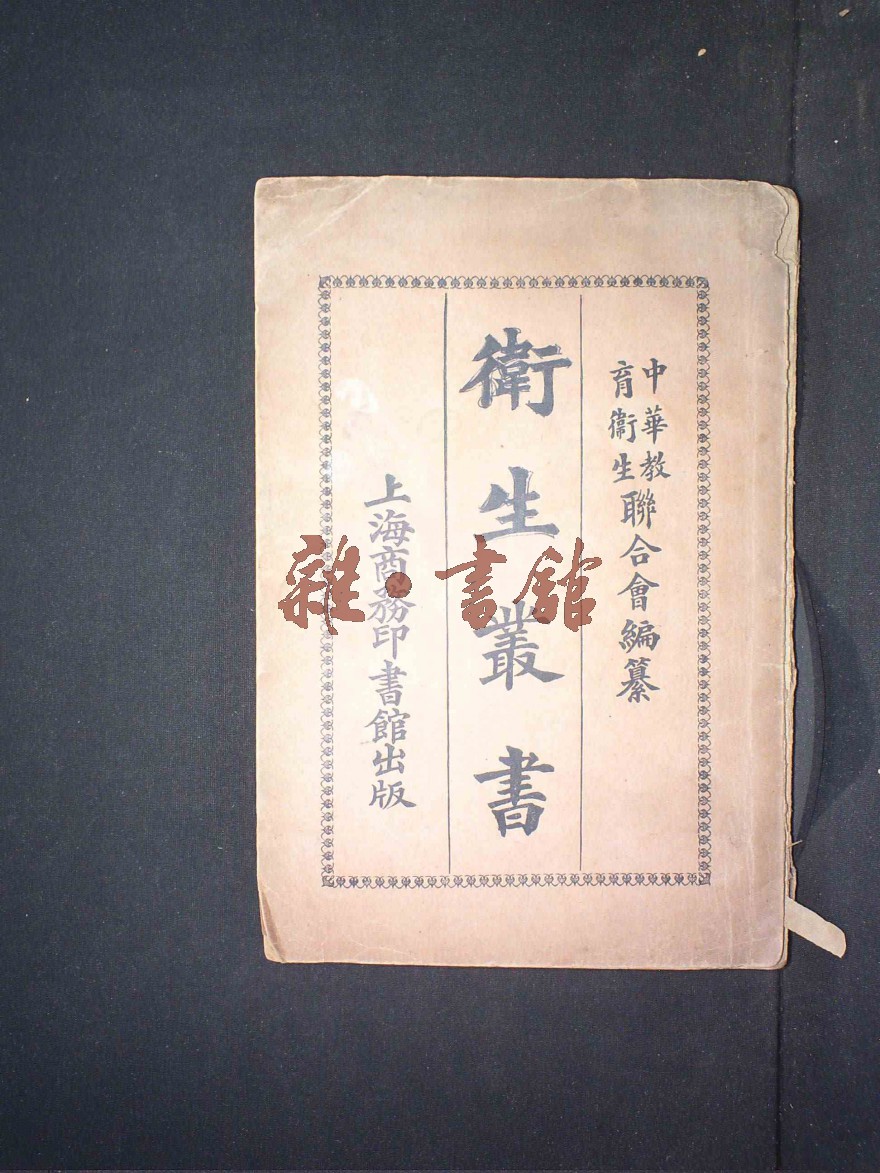 中華教
育衛生
聯合會編纂
衛生叢書
上海商務印書館出版
雜·書館